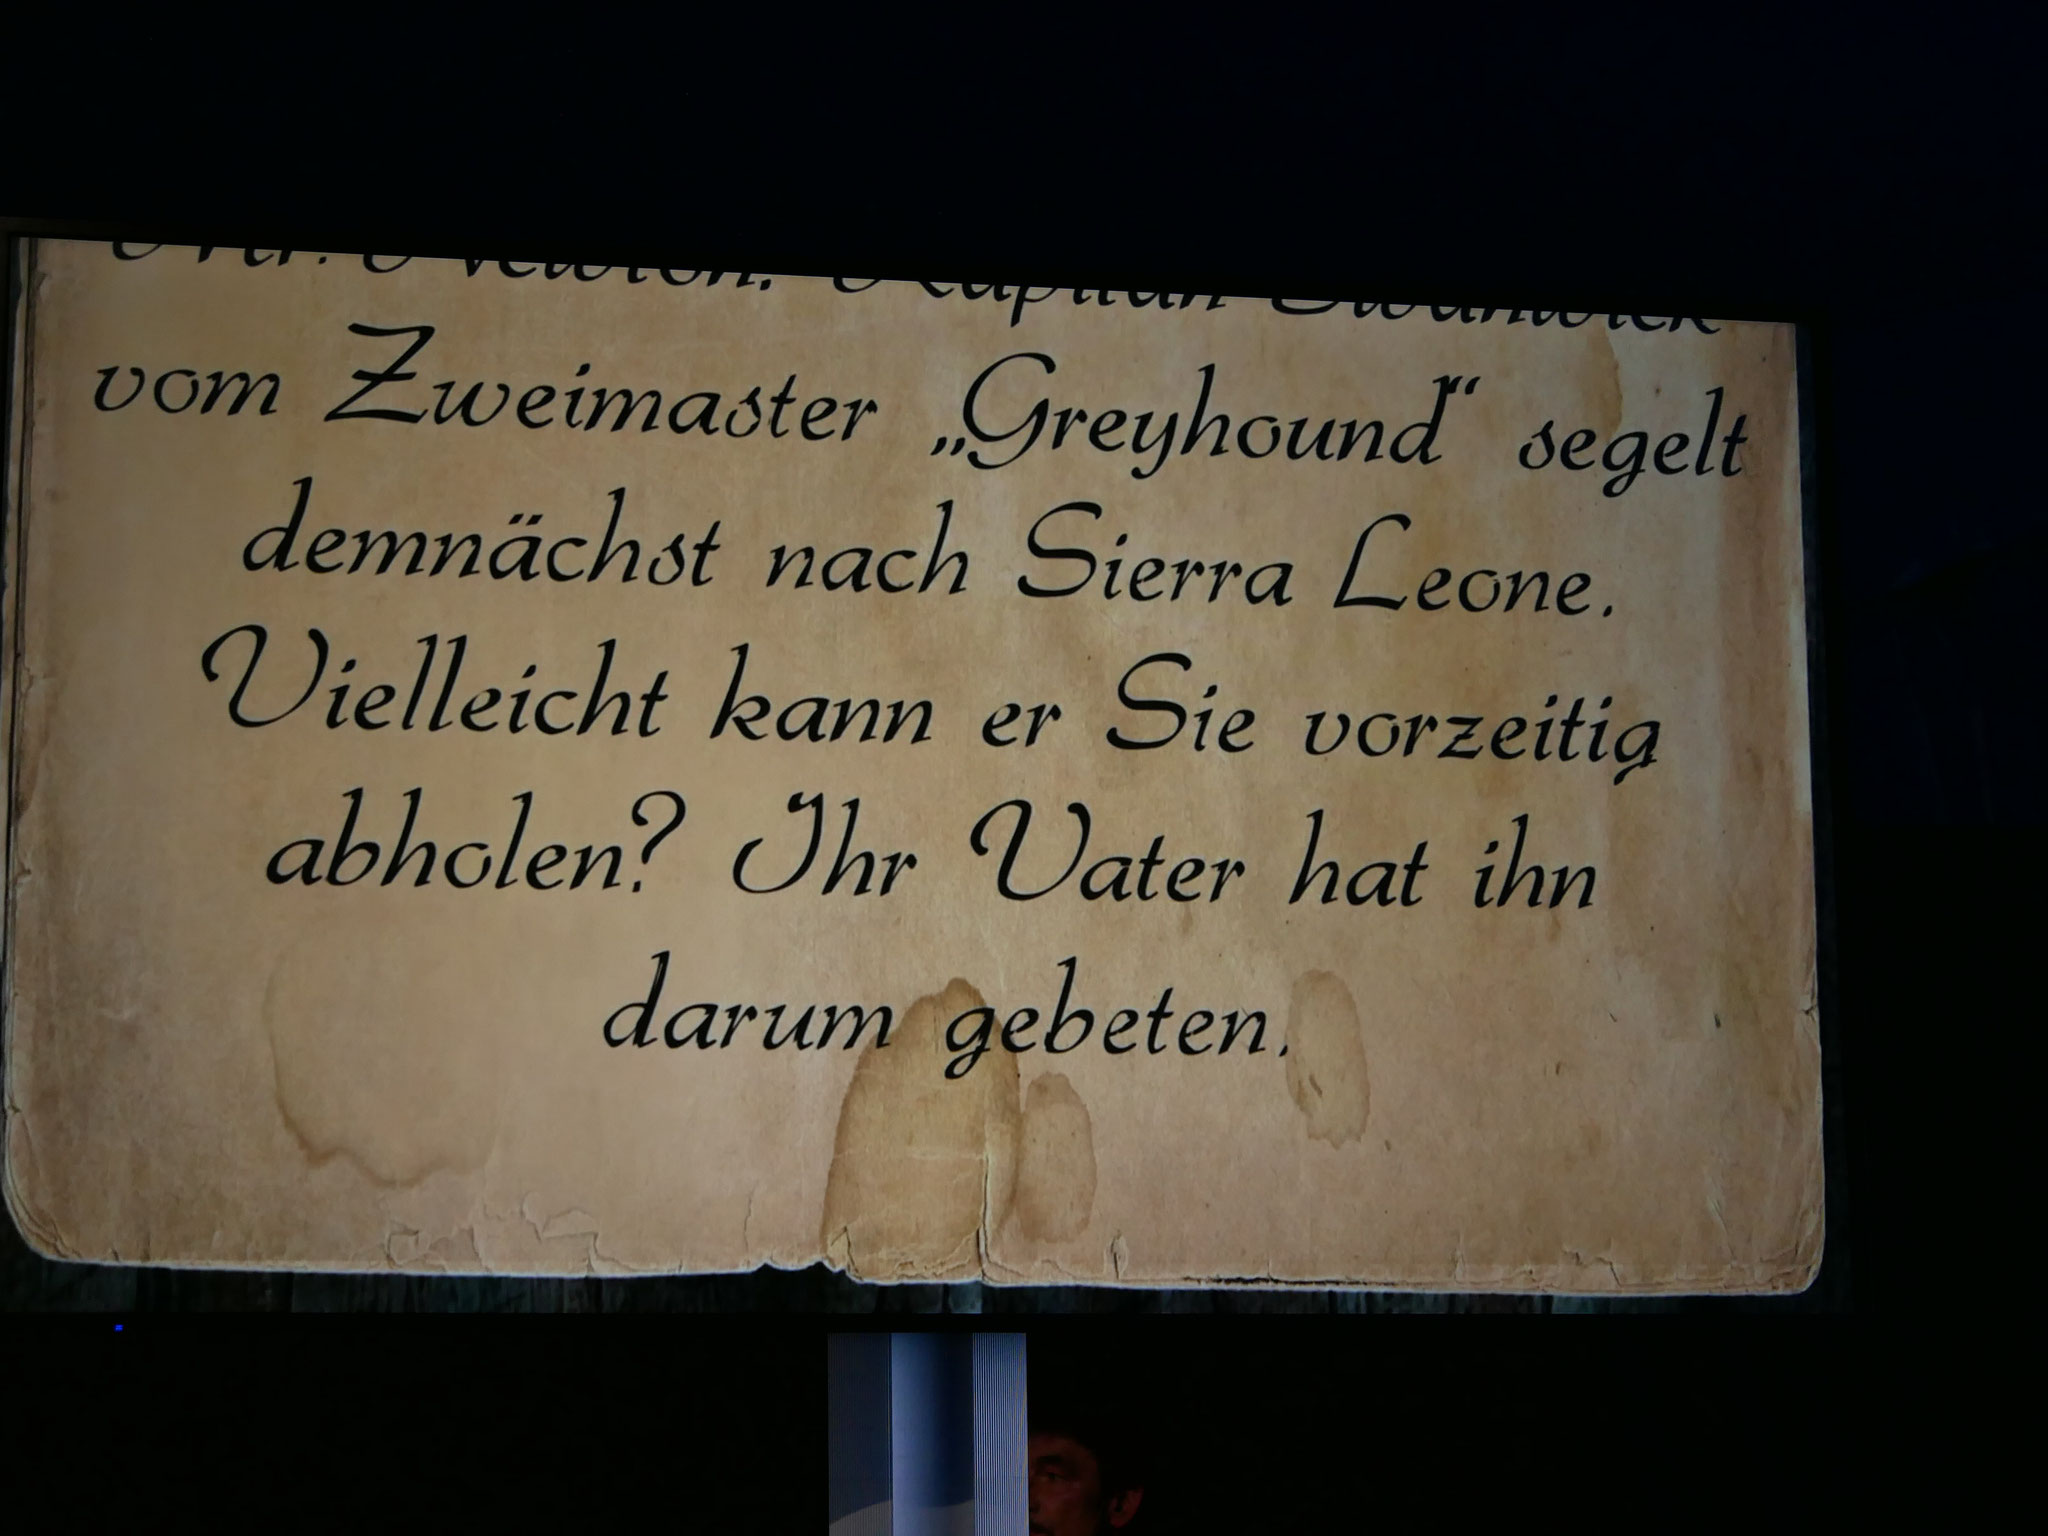 Mr. Newton. Kapitän Swanwick
vom Zweimaster „Greyhound“ segelt
demnächst nach Sierra Leone.
Vielleicht kann er Sie vorzeitig
abholen? Ihr Vater hat ihn
darum gebeten.